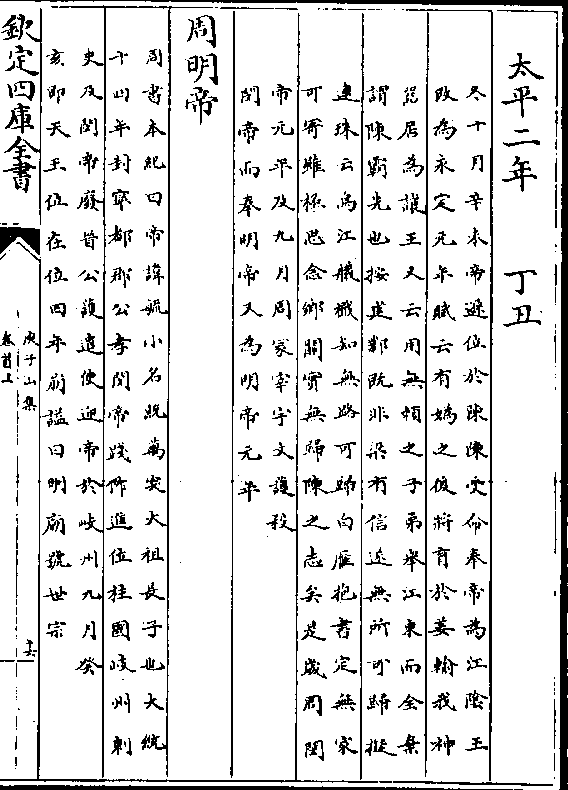 太平二年　丁丑
冬十月辛未帝遜位於陳陳受命奉帝為江陰王
改為永定元年賦云有媯之後將育於姜輸我神
器居為讓王又云用無賴之子弟舉江東而全棄
謂陳霸先也按並鄴既非梁有信遂無所可歸擬
連珠云烏江艤檝知無路可歸白雁抱書定無家
可寄雖極思念鄉關實無歸陳之志矣是歲周閔
帝元年及九月周冢宰宇文護殺
閔帝而奉明帝又為明帝元年
周明帝
周書本紀曰帝諱毓小名統萬突大祖長子也大統
十四年封寧都郡公孝閔帝踐阼進位柱國岐州刺
史及閔帝廢晉公護遣使迎帝於岐州九月癸
亥即天王位在位四年崩諡曰明廟號世宗
欽定四庫全書
庾子山集
卷首上